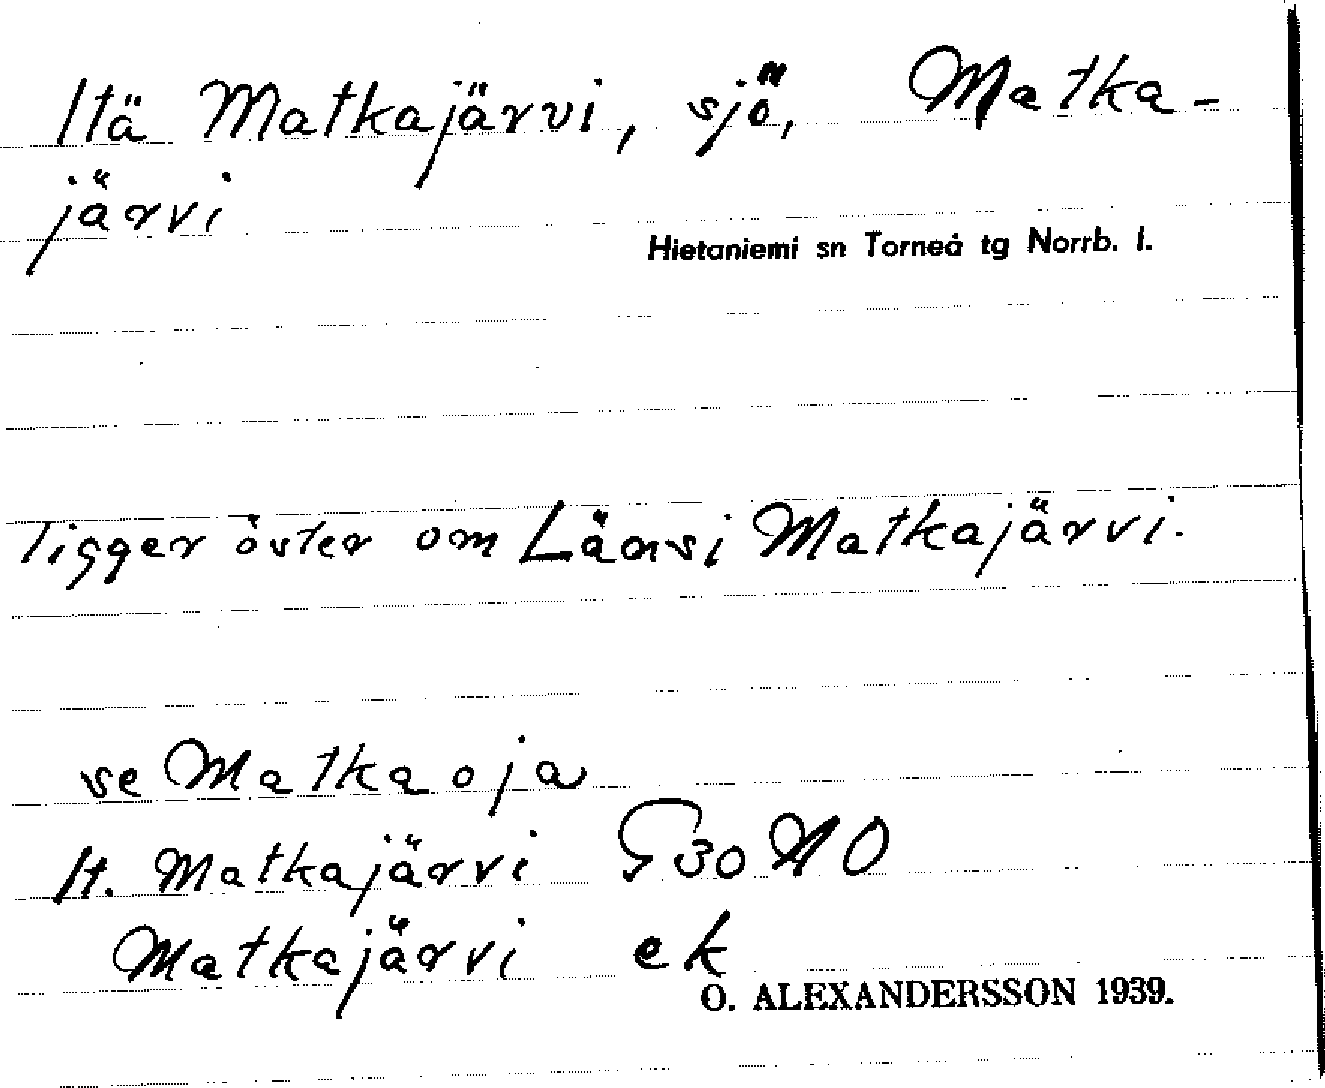 Itä Matkajärvi, sjö, Matka-
järvi
Hietaniemi sn Torneå tg Norrb. l.
ligger öster om Länsi Matkajärvi.
se Matkaoja
It. Matkajärvi G 30 NO
Matkajärvi ek
O. ALEXANDERSSON 1939.